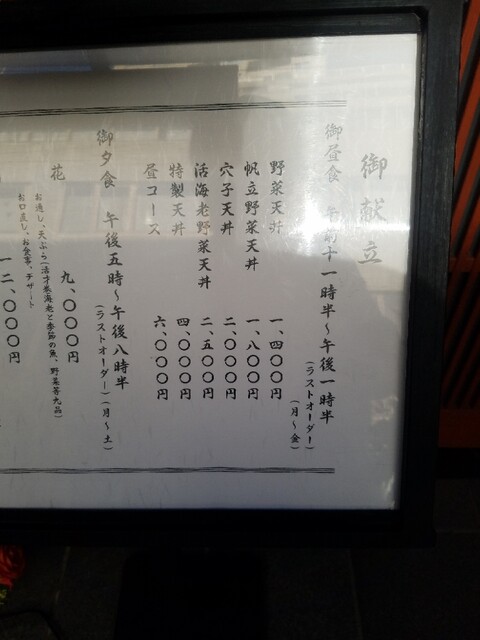 御献立
御昼食 午前十一時半～午後一時半
(ラストオーダー)
(月～金)
野菜天丼 一、四〇〇円
帆立野菜天丼 一、八〇〇円
穴子天丼 二、〇〇〇円
活海老野菜天丼 二、五〇〇円
特製天丼 四、〇〇〇円
昼コース 六、〇〇〇円
御夕食 午後五時～午後八時半
(ラストオーダー)(月～土)
花 九、〇〇〇円
お通し、天ぷら(活才巻海老と季節の魚、野菜等九品)
お口直し、お食事、デザート
一二、〇〇〇円